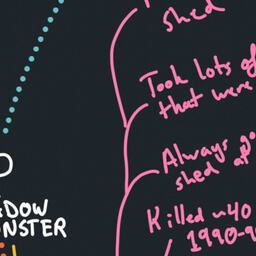 shed
Took lots of
that were
Always
shed at
Killed ~40
1990-9
DOW
ONSTER